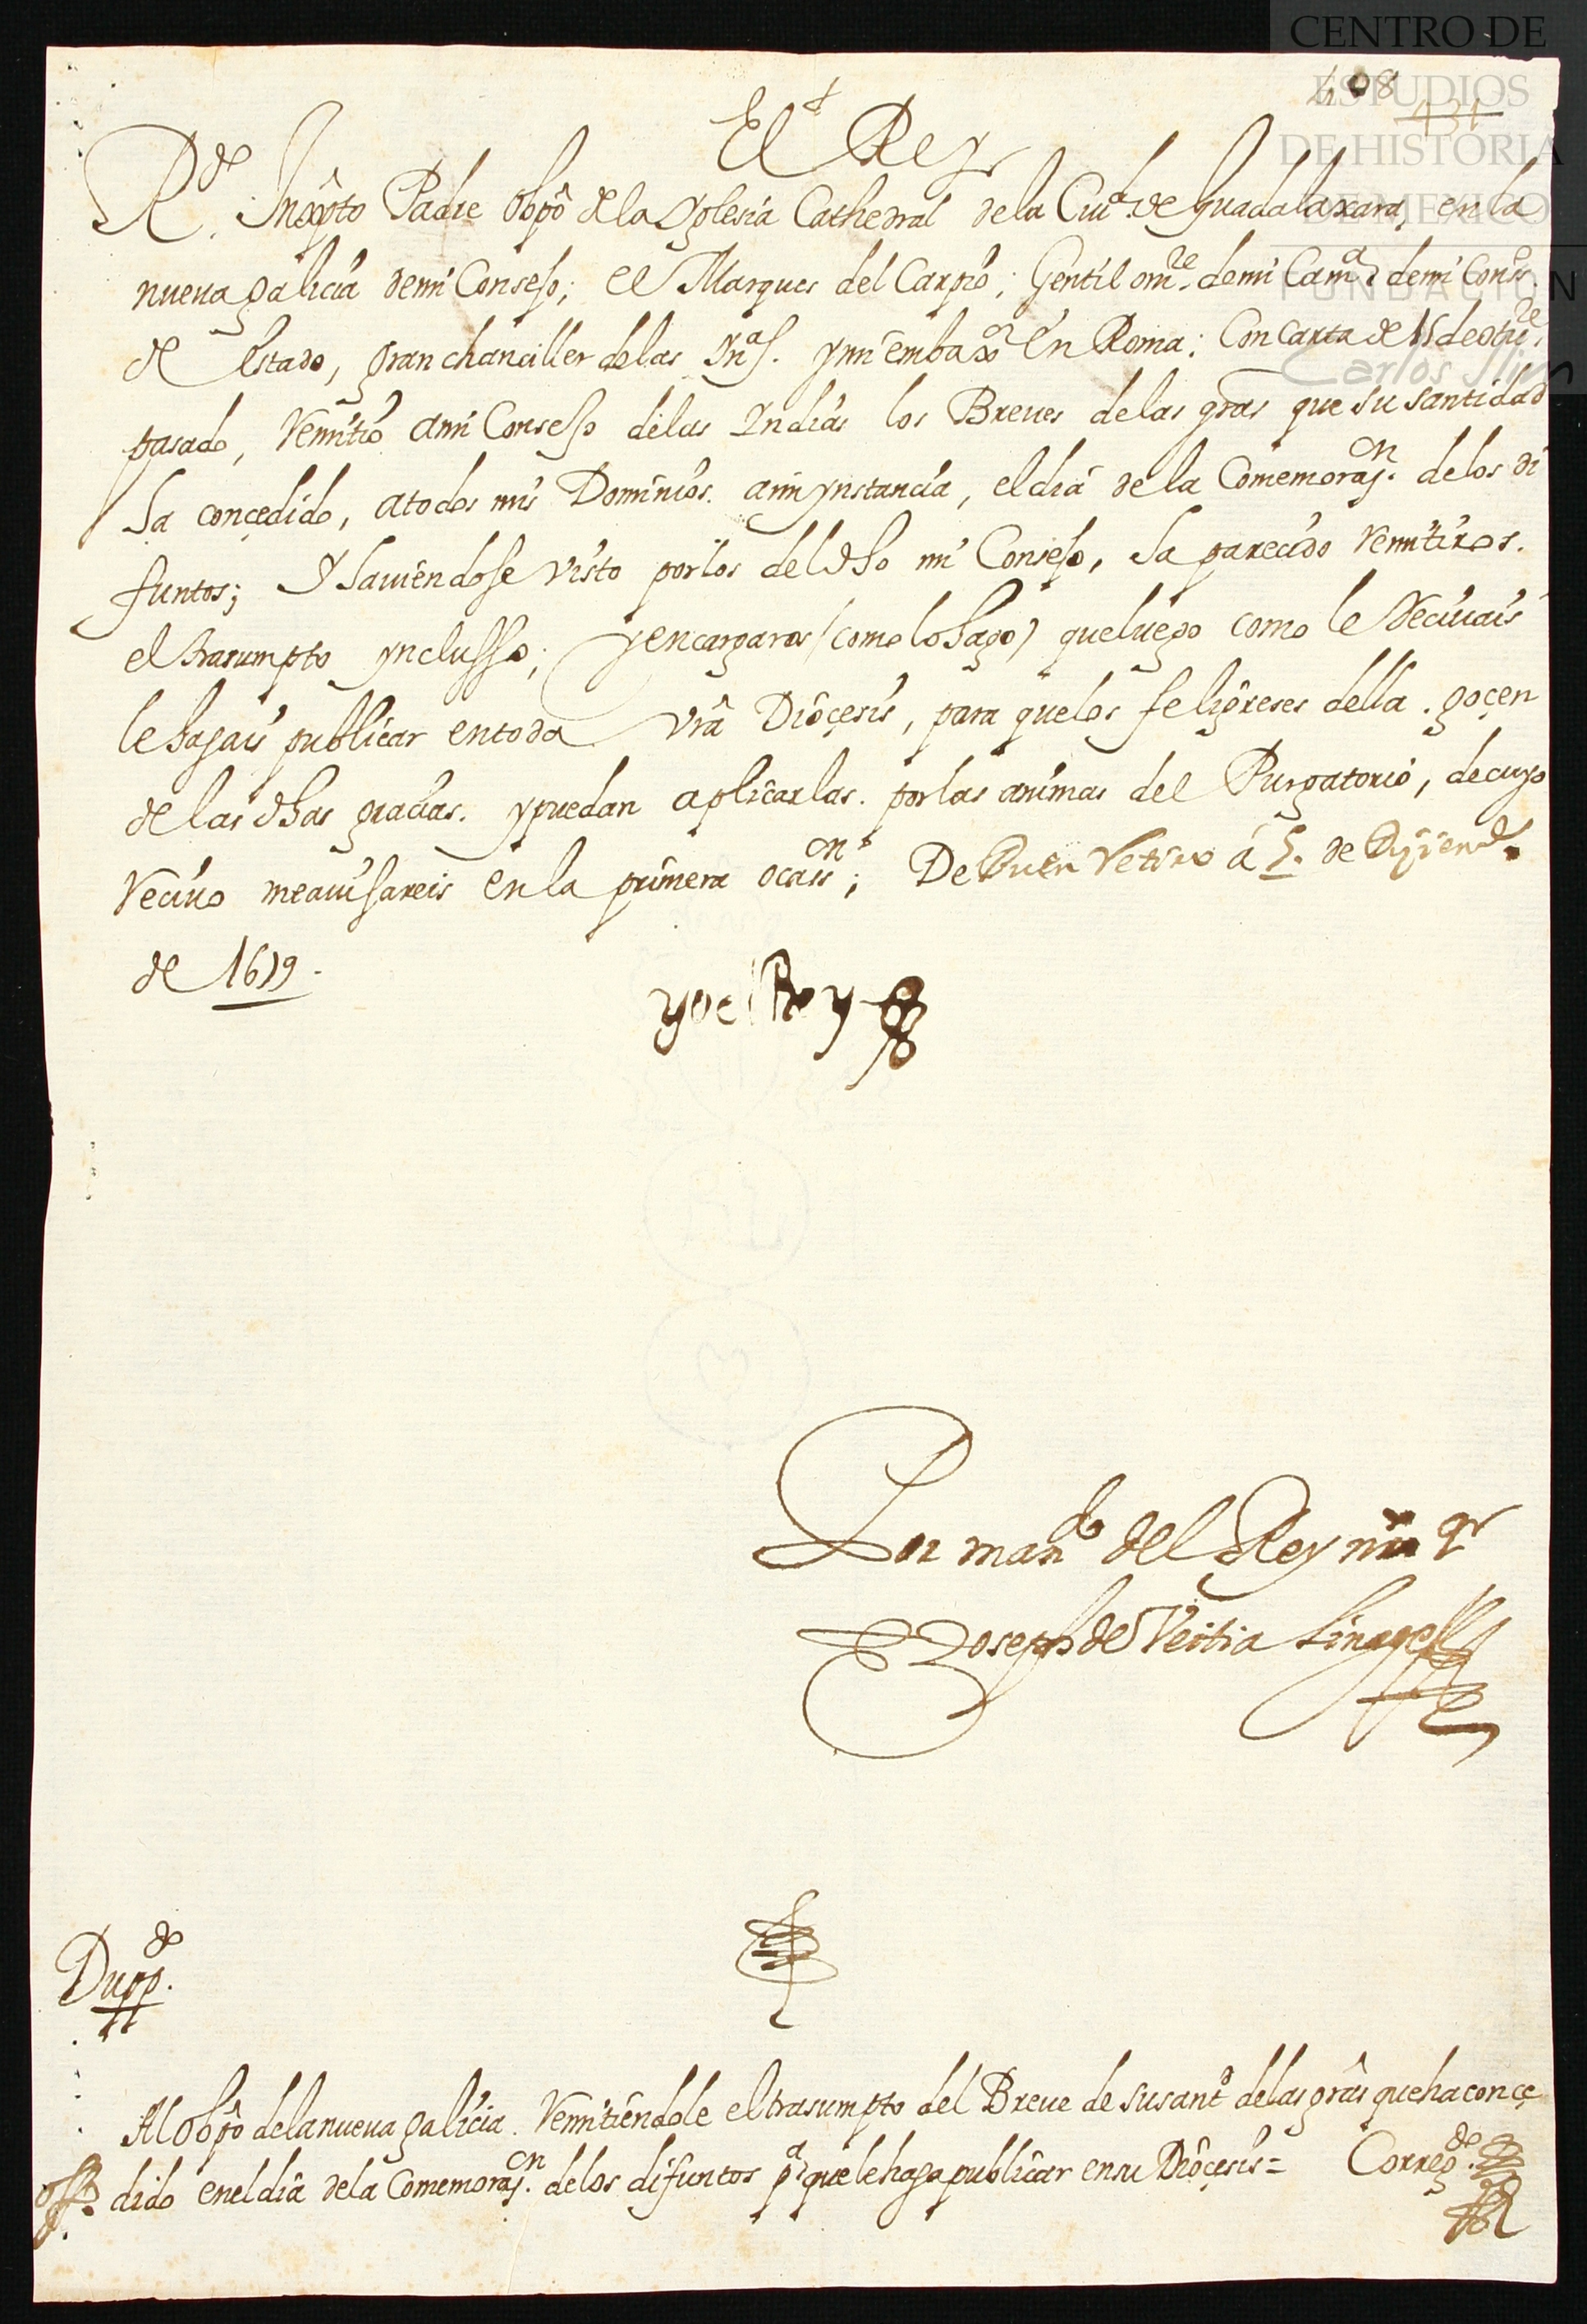 CENTRO DE
ESTUDIOS
DE HISTORIA
DE MEXICO
FUNDACIÓN
Carlos Slim
408
431
El Rey
Rdo. Inxpto Padre obpo de la Yglesia Cathedral de la Ciud. de Guadalaxara, en la
nueua galicia de mi Consejo; el Marques del Carpio; Gentil omre. de mi Camª. de mi Consº.
de estado, gran chanciller de las Ynªs. y mi embaxor en Roma; Con carta de 15 de oture.
pasado, Remitio a mi Consejo de las Yndias los Breues de las gras que su santidad
ha conçedido, a todos mis Dominios. a mi ynstancia, el dia de la Comemoraçn. de los di
funtos; y hauiendose visto por los del dho mi Consejo, ha parecido Remitiros.
el trasumpto ynclusso; y encargaros (como lo hago) que luego como le Reciuais
le hagais publicar en toda vrâ Dioçesis, para que los feligreses della. goçen
de las dhas gracias. y puedan aplicarlas. por las animas del Purgatorio, de cuyo
Reciuo me auisareis en la primera ocassn; De Buen Retiro á 5. de Diziembre
de 1679.
yo el Rey
Por mando del Rey nro sr
Joseph de Veitia Linage
Duppdo.
Al obpo de la nueua galicia. Remitiendole el trasumpto del Breue de su santd de las grâs que ha conçe
dido en el dia de la Comemoraçn. de los difuntos pª. que le haga publicar en su Dioçesis = Corregdo.